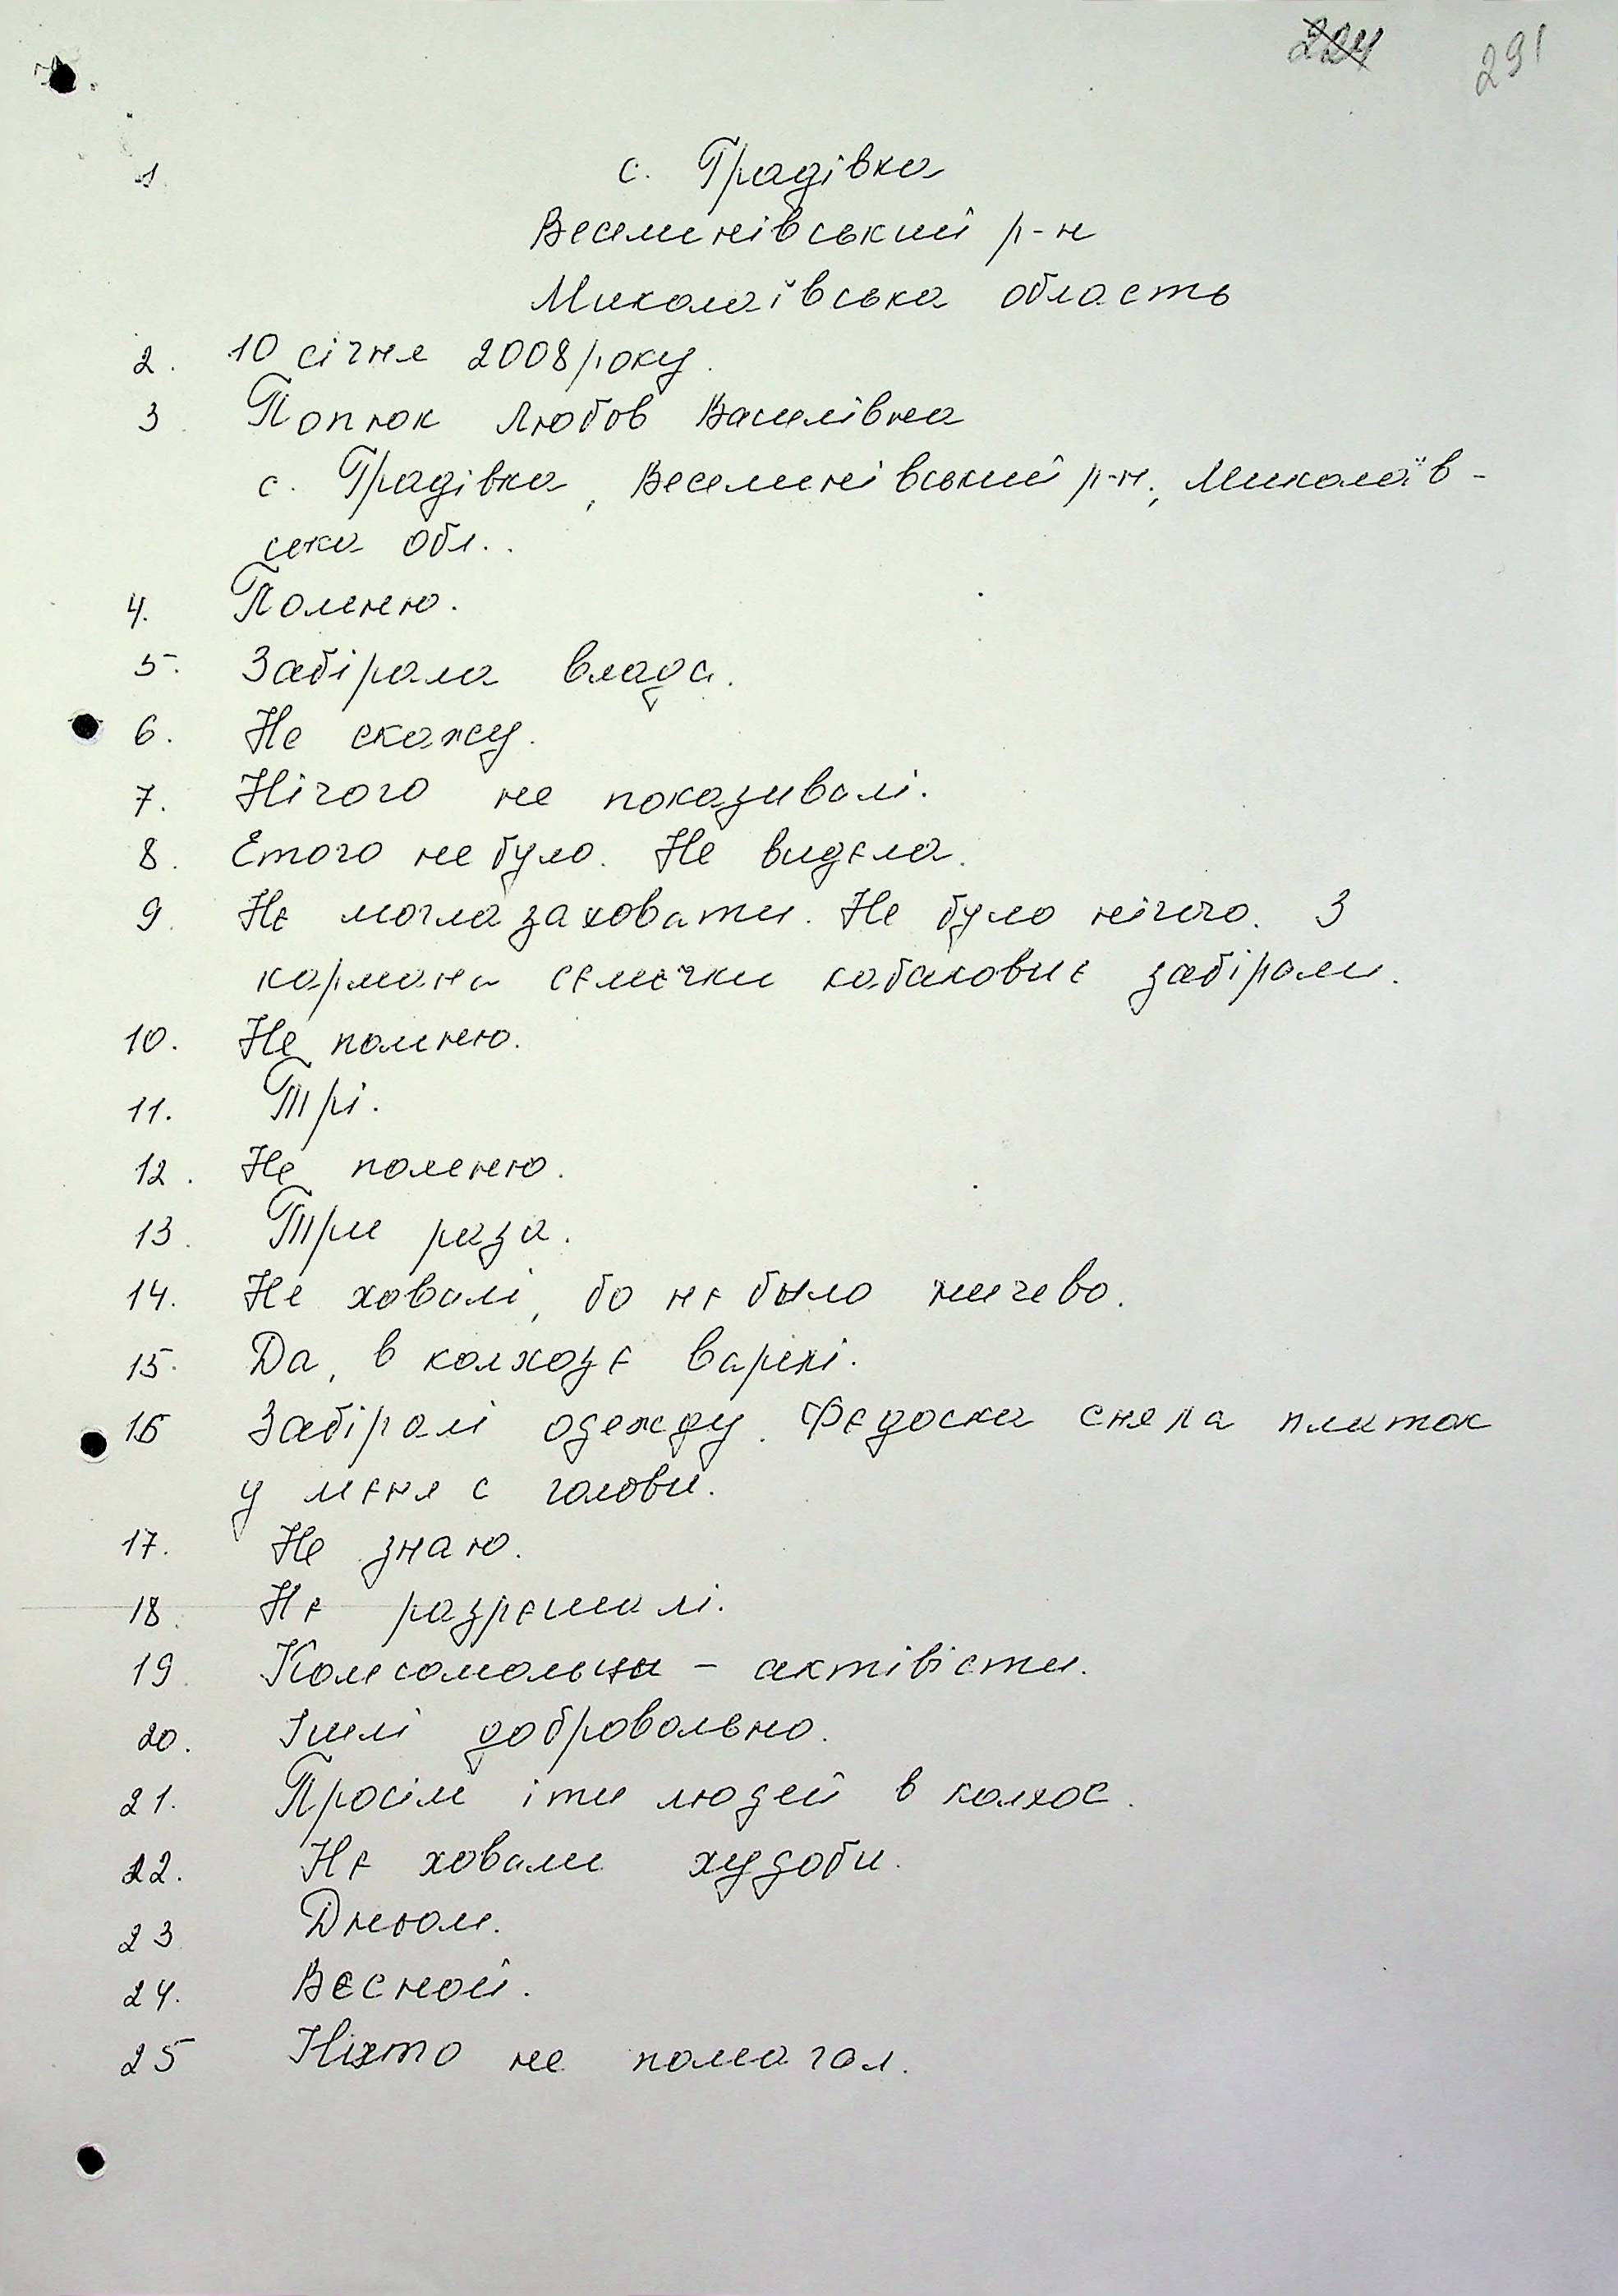 224 291
1. с. Градівка
Веселинівський р-н
Миколаївська область
2. 10 січня 2008 року.
3. Попюк Любов Василівна
с. Градівка, Веселинівський р-н., Миколаїв-
ська обл..
4. Помню.
5. Забірала влада.
6. Не скажу.
7. Нічого не показивалі.
8. Етого не було. Не видєла.
9. Нє могла заховати. Не було нічого. З
кармана сємєчки кабаковиє забірали.
10. Не помню.
11. Трі.
12. Не помню.
13. Три раза.
14. Не ховалі, бо нє было ничево.
15. Да, в колхозє варілі.
16 Забіралі одежду. Фєдоска сняла платок
у мєня с голови.
17. Не знаю.
18. Нє разрєшалі.
19. Комсомольцы - актівісти.
20. Ішлі добровольно.
21. Просілі іти людей в колхос.
22. Нє ховали худоби.
23 Дньом.
24. Вєсной.
25 Ніхто не помагал.